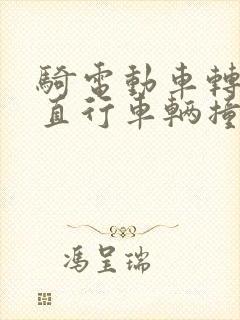 騎電動車轉
直行車輛撞
馮呈瑞